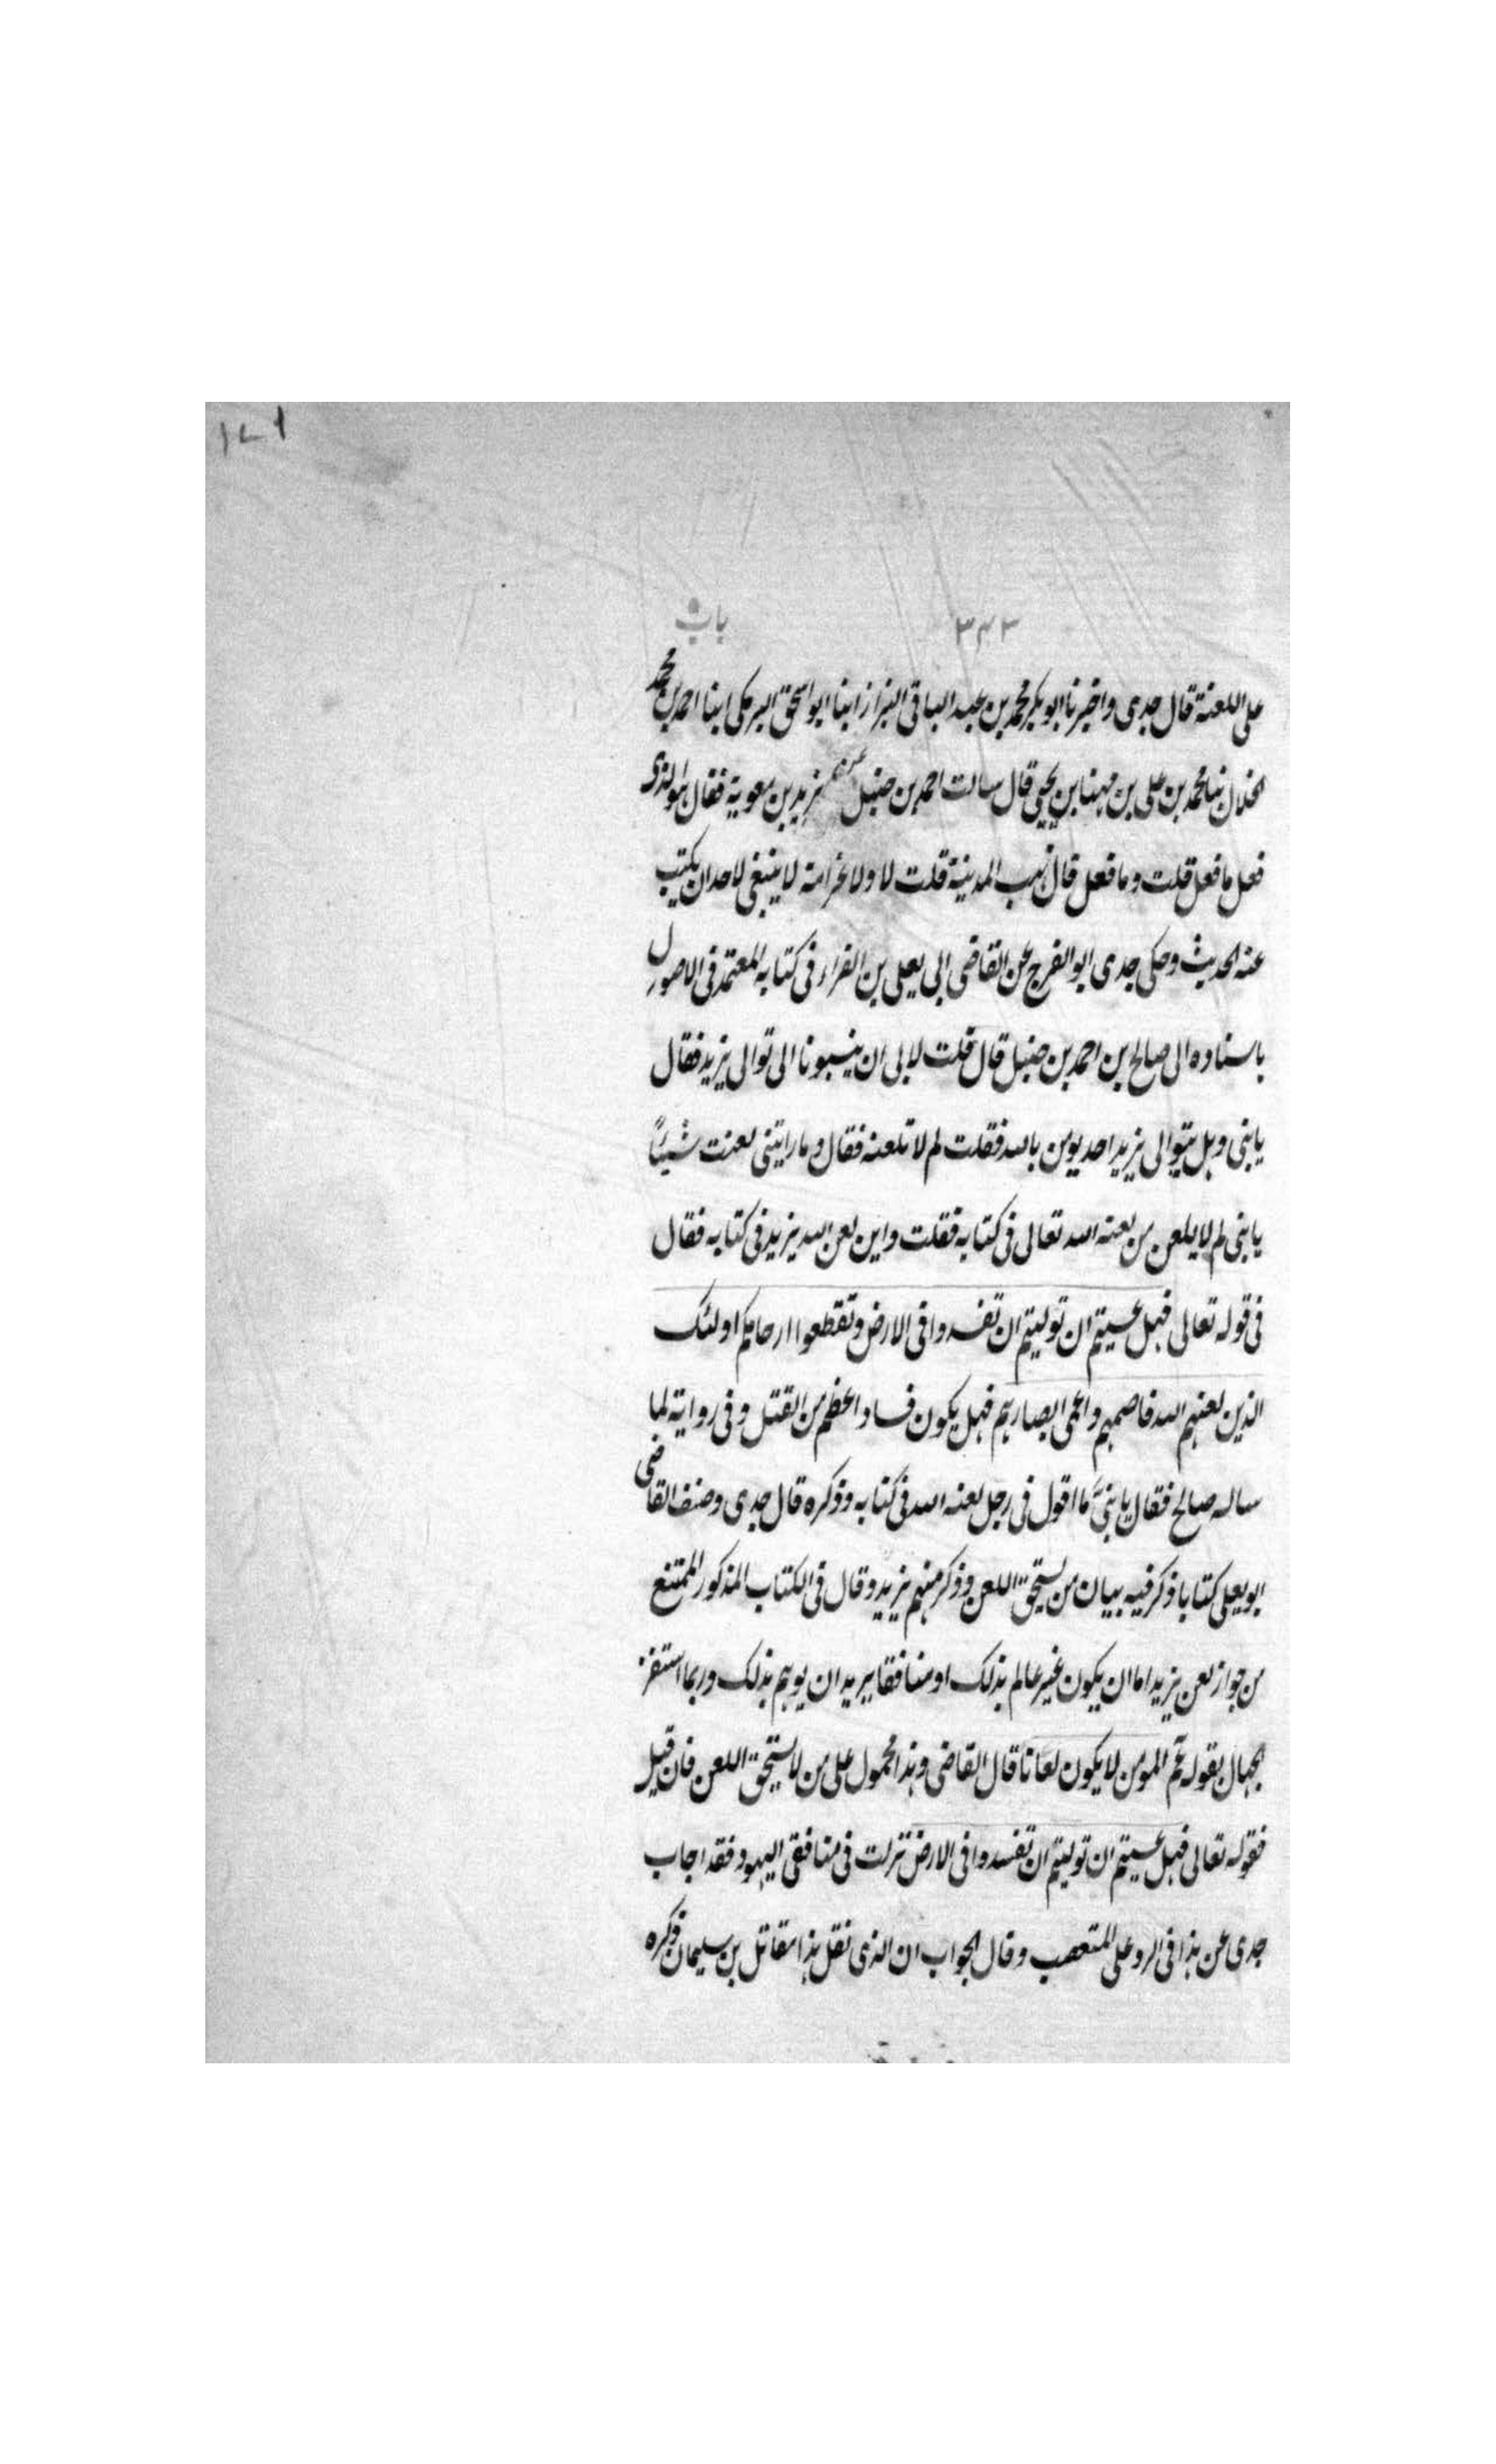 ۱۷۱
۳۴۲ باب
على اللعنة قال جدى واخبرنا ابو بكر محمد بن عبد الباقى البزاز ابنا ابو اسحق البرمكى ابنا احمد بن محمد
الخلال ثنا محمد بن على بن مهنا بن يحيى قال سالت احمد بن حنبل عن يزيد بن معوية فقال هو الذى
فعل ما فعل قلت وما فعل قال نهب المدينة قلت لا ولا كرامة لا ينبغى لاحد ان يكتب
عنه الحديث وحكى جدى ابو الفرج عن القاضى ابى يعلى بن الفراء فى كتابه المعتمد فى الاصول
باسناده الى صالح بن احمد بن حنبل قال قلت لابى ان ينسبونا الى توالى يزيد فقال
يا بنى وهل يتوالى يزيد احد يومن بالله فقلت لم لا تلعنه فقال وما رايتنى لعنت شيئًا
يا بنى لم لا يلعن من لعنه الله تعالى فى كتابه فقلت واين لعن الله يزيد فى كتابه فقال
فى قوله تعالى فهل عسيتم ان توليتم ان تفسدوا فى الارض وتقطعوا ارحامكم اولئك
الذين لعنهم الله فاصمهم واعمى ابصارهم فهل يكون فساد اعظم من القتل وفى رواية لما
ساله صالح فقال يا بنىَّ ما اقول فى رجل لعنه الله فى كتابه وذكره قال جدى وصنف القاضى
ابو يعلى كتابا ذكر فيه بيان من يستحق اللعن وذكر منهم يزيد وقال فى الكتاب المذكور الممتنع
من جواز لعن يزيد اما ان يكون غير عالم بذلك او منافقا يريد ان يوهم بذلك وربما استفز
الجهال بقوله عم المومن لا يكون لعانا قال القاضى وهذا محمول على من لا يستحق اللعن فان قيل
فقوله تعالى فهل عسيتم ان توليتم ان تفسدوا فى الارض نزلت فى منافقى اليهود فقد اجاب
جدى عن هذا فى الرد على المتعصب وقال الجواب ان الذى نقل هذا مقاتل بن سليمان ذكره